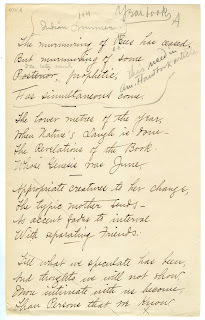 Year books
A
1884
Indian Summer
The murmuring of Bees has ceased,
But murmuring of some
Posterior, prophetic,
Has simultaneous come.
The lower metres of the Year,
When Nature's Laugh is done
The Revelations of the Book
Whose Genesis was June.
Appropriate creatures to her change,
The typic mother sends
As accent fades to interval
With separating Friends.
Till what we speculate has been,
And thoughts we will not show
More intimate with us become
Than Persons that we know